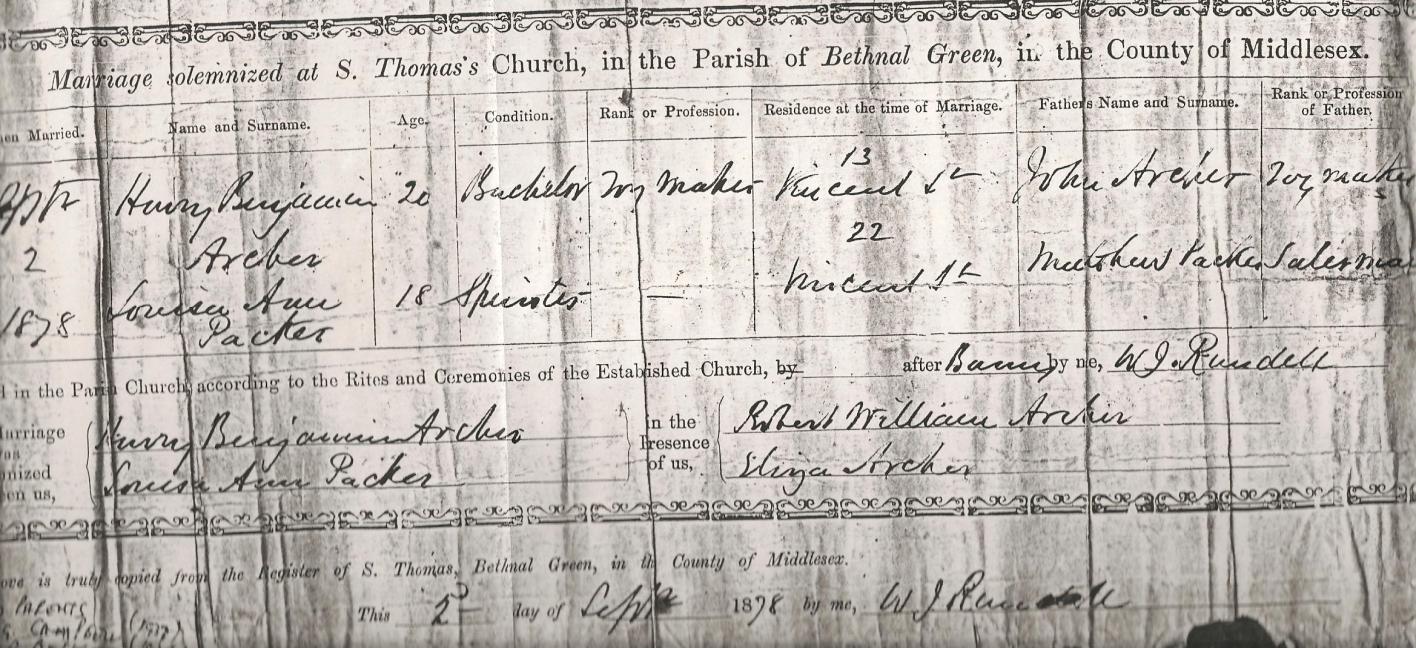 Marriage solemnized at S. Thomas's Church, in the Parish of Bethnal Green, in the County of Middlesex.
en Married. Name and Surname. Age. Condition. Rank or Profession. Residence at the time of Marriage. Father's Name and Surname. Rank or Profession of Father.
Sept 2 1878 Harry Benjamin Archer 20 Bachelor Toy Maker 13 Vincent St John Archer Toy maker
Louisa Ann Packer 18 Spinster — 22 Vincent St Matthew Packer Salesman
d in the Parish Church, according to the Rites and Ceremonies of the Established Church, by after Banns by me, W J. Rundell
arriage
as
nized
en us,
Harry Benjamin Archer
Louisa Ann Packer
in the
Presence
of us,
Robert William Archer
Eliza Archer
ove is truly copied from the Register of S. Thomas, Bethnal Green, in the County of Middlesex.
This 2 day of Sept 1878 by me, W J Rundell